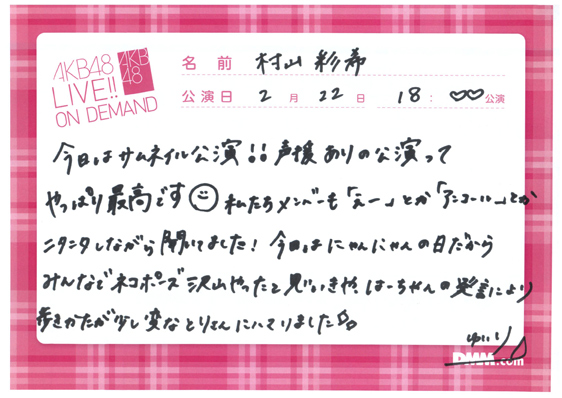 AKB48
LIVE!!
ON DEMAND
AKB
48
名前 村山彩希
公演日 2月22日 18:♡♡公演
今日はサムネイル公演!!声援ありの公演って
やっぱり最高です☺私たちメンバーも「えー」とか「アンコール」とか
ニタニタしながら聞いてました!今日はにゃんにゃんの日だから
みんなでネコポーズ沢山やったと思いきや、はーちゃんの発言により
歩きかたが少し変なとりさんにハマりました
ゆいり
DMM.com